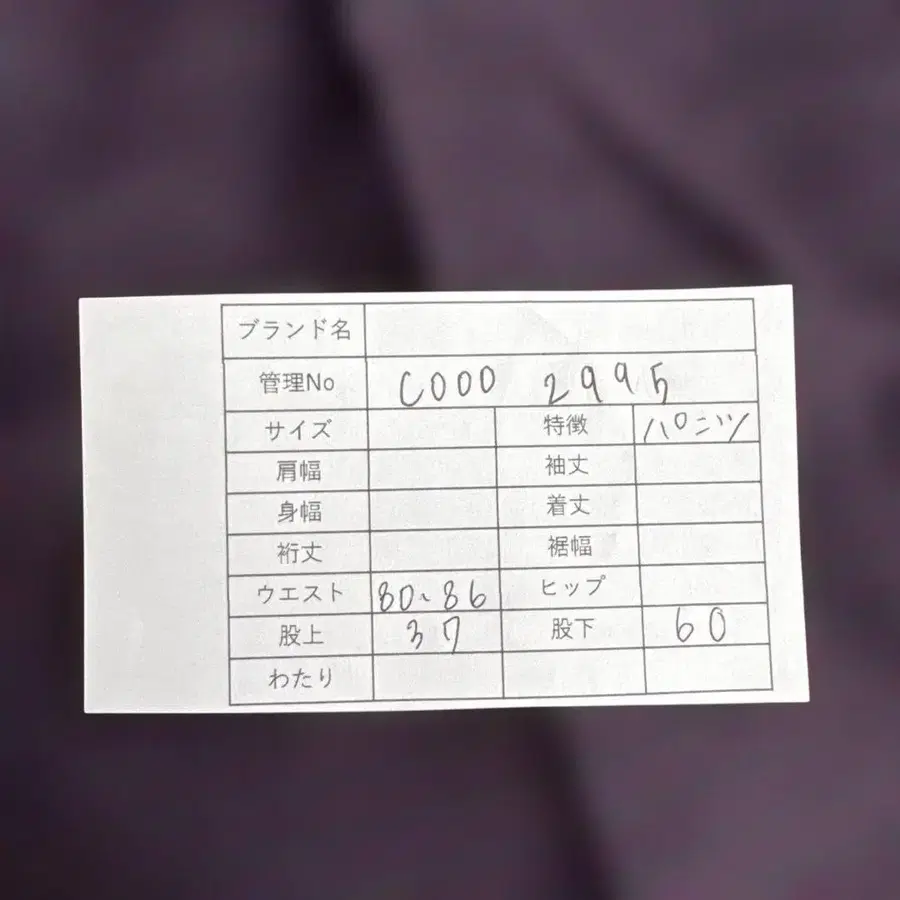 ブランド名
管理No C000 2995
サイズ 特徴 パンツ
肩幅 袖丈
身幅 着丈
裄丈 裾幅
ウエスト 80~86 ヒップ
股上 37 股下 60
わたり